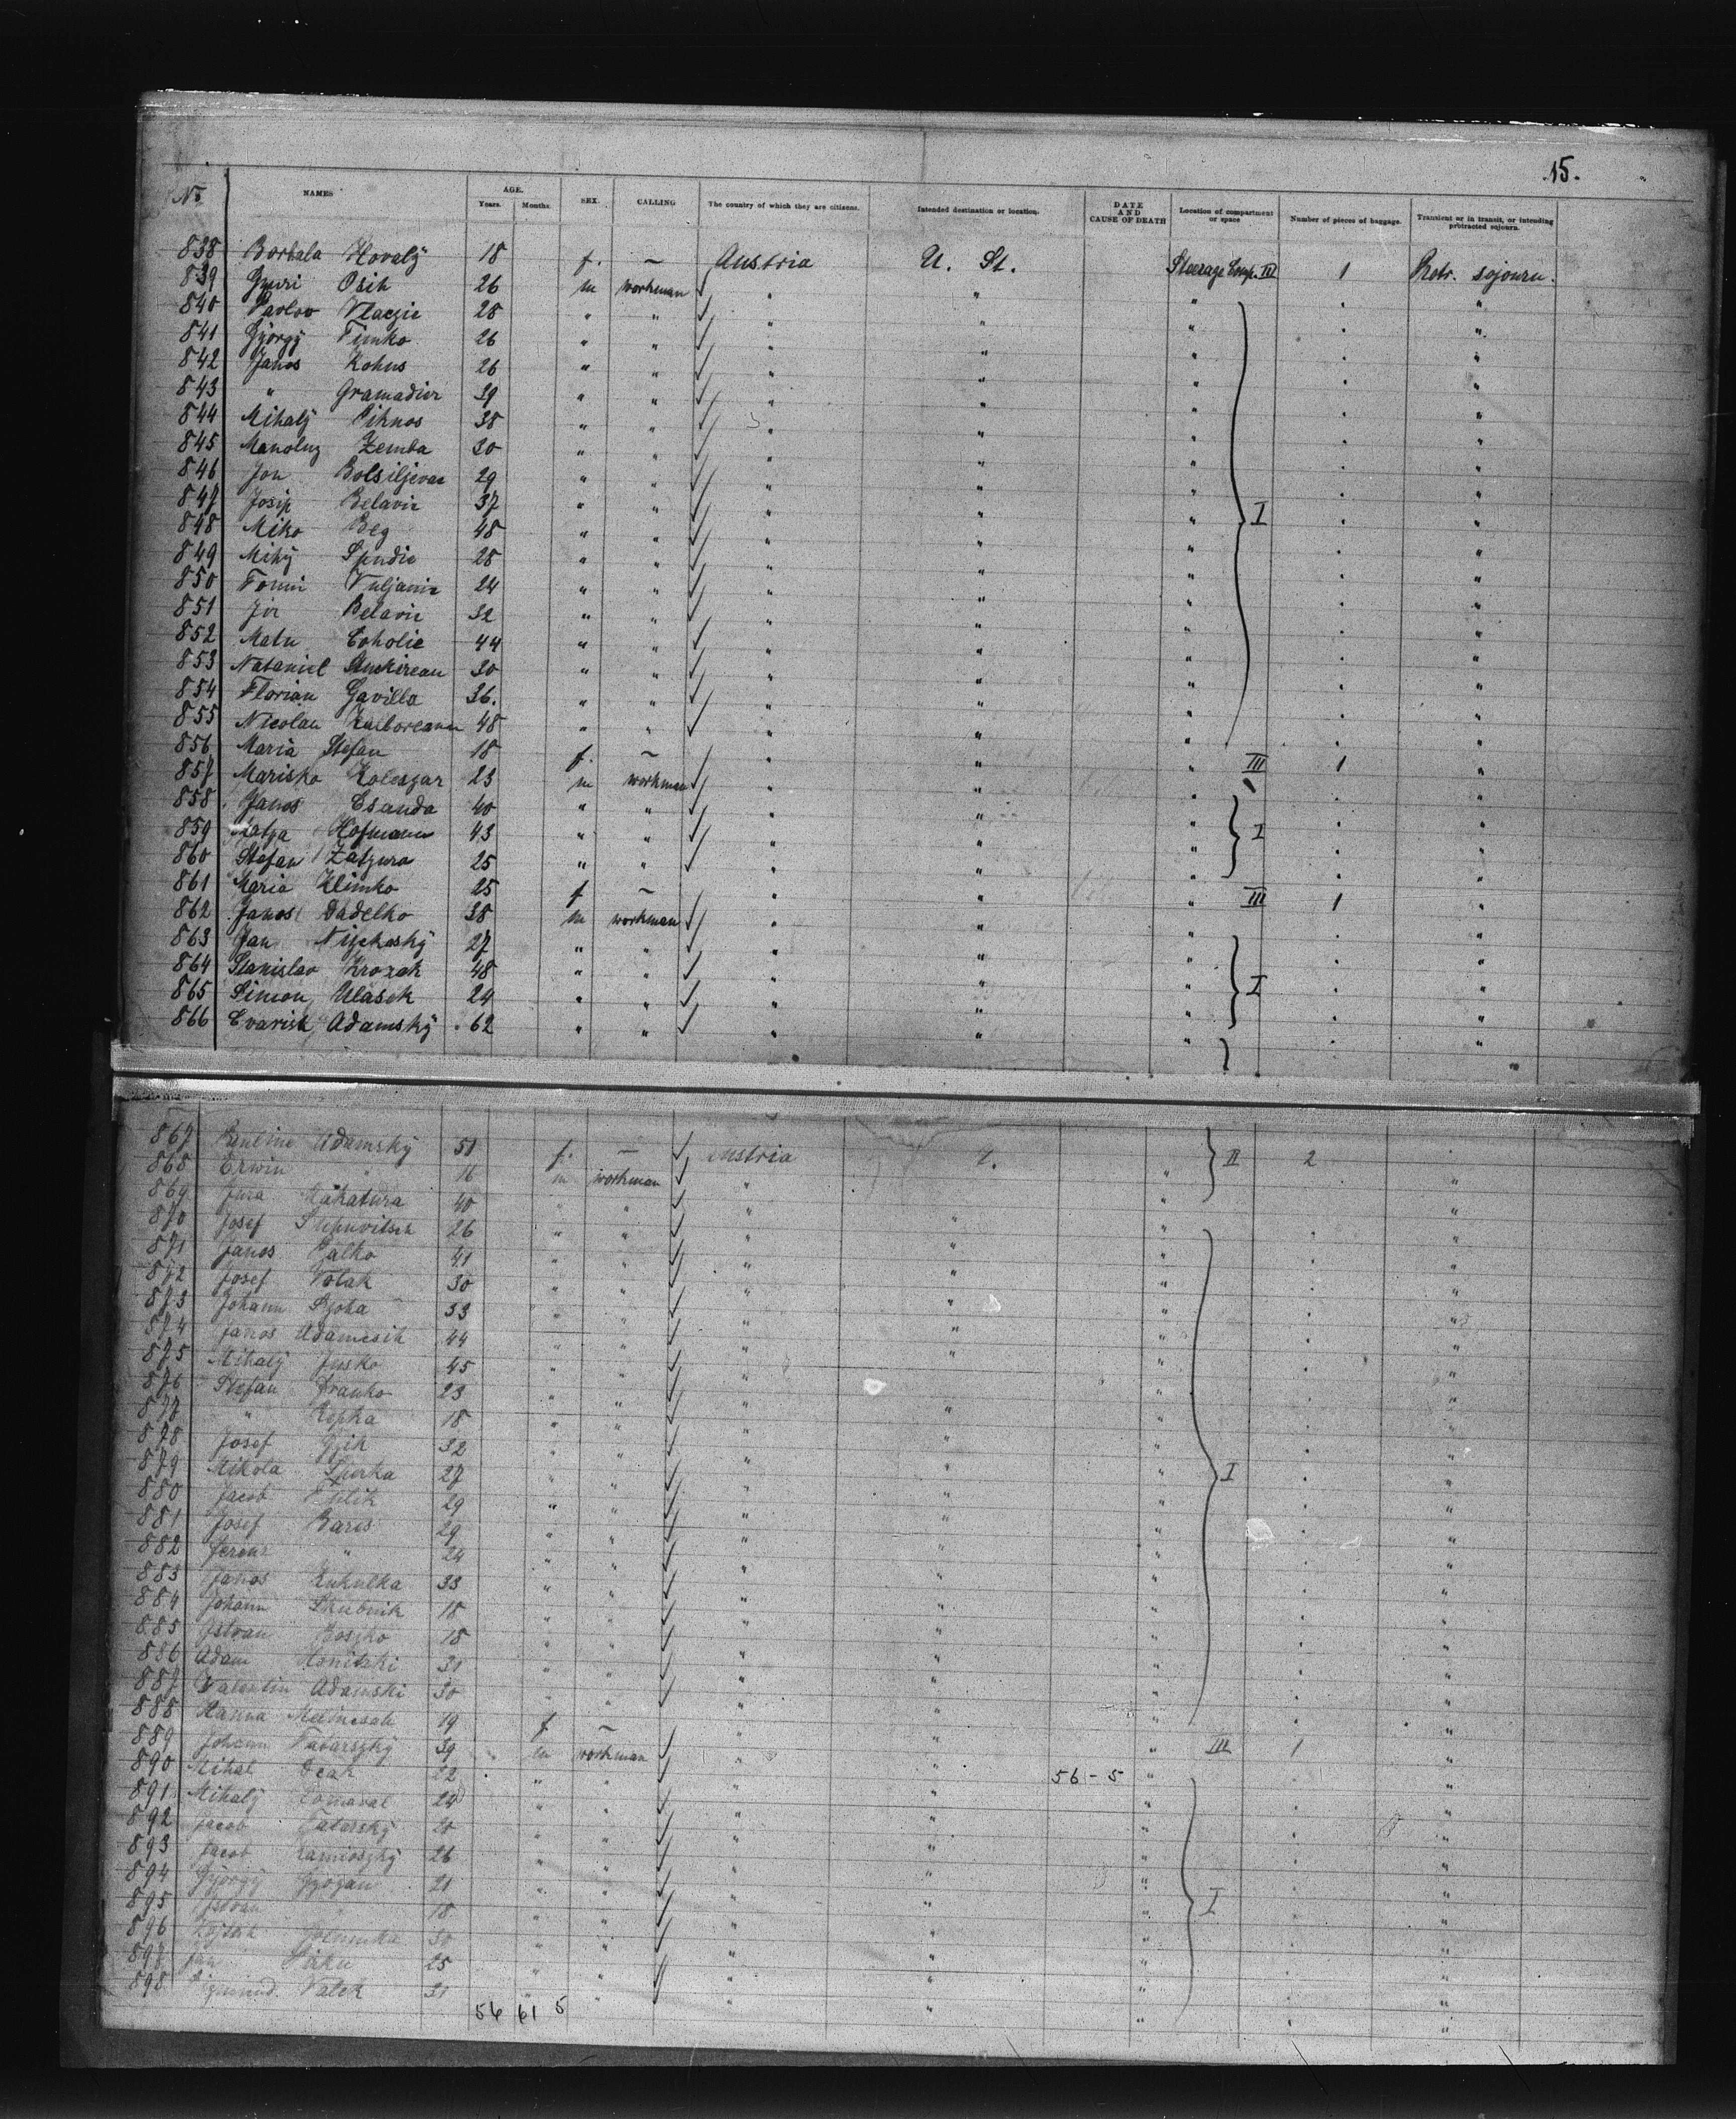 15.
No NAMES AGE. Years. Months. SEX. CALLING The country of which they are citizens. Intended destination or location. DATE AND CAUSE OF DEATH Location of compartment or space Number of pieces of baggage. Transient or in transit, or intending protracted sojourn.
838 Borbala Kovalÿ 18 f. — Austria U. St. Steerage Comp. III 1 Protr. sojourn.
839 Gyuri Osih 26 m workman ✓ " " " " "
840 Pavlov Vlaczic 28 " " ✓ " " " " "
841 György Timko 26 " " ✓ " " " " "
842 Janos Kohus 26 " " ✓ " " " " "
843 " Gramadier 39 " " ✓ " " " " "
844 Mihalÿ Pihnos 38 " " ✓ " " " " "
845 Zemba 30 " " ✓ " " " " "
846 Jon Bolsiljevac 29 " " ✓ " " " " "
847 Josip Belavic 37 " " ✓ " " " I " "
848 Miko Beg 48 " " ✓ " " " " "
849 Mihÿ Spudic 28 " " ✓ " " " " "
850 Tomi Vuljanic 24 " " ✓ " " " " "
851 Jve Belavic 32 " " ✓ " " " " "
852 Mate Coholic 44 " " ✓ " " " " "
853 Nataniel 30 " " ✓ " " " " "
854 Florian Gavilla 36. " " ✓ " " " " "
855 Nicolau 48 " " ✓ " " " " "
856 Maria Stefan 18 f. — " " " III 1 "
857 Marisko Koleszar 23 m workman ✓ " " " " "
858 Janos Csanda 40 " " ✓ " " " " "
859 Hofmann 43 " " ✓ " " " I " "
860 Stefan Zatzura 25 " " ✓ " " " " "
861 Maria Klimko 25 f — " " " III 1 "
862 Janos Dadelko 38 m workman ✓ " " " " "
863 Jan Nizchaskÿ 27 " " ✓ " " " " "
864 Stanislav Krozak 48 " " ✓ " " " I " "
865 Simon Ulasek 24 " " ✓ " " " " "
866 Evarist Adamskÿ 62 " " ✓ " " " " "
867 Pauline Adamskÿ 51 f. — ✓ Austria II 2
868 Erwin " 16 m workman ✓ " " "
869 Jura Makatura 40 " " ✓ " " "
870 Josef 26 " " ✓ " " " " "
871 Janos Palko 41 " " ✓ " " " " "
872 Josef Volak 30 " " ✓ " " " " "
873 Johann Szoka 33 " " ✓ " " " " "
874 Janos Adamcsik 44 " " ✓ " " " " "
875 Mihalÿ Jusko 45 " " ✓ " " " " "
876 Stefan Dranko 23 " " ✓ " " " " "
877 " Repka 18 " " ✓ " " " " "
878 Josef 32 " " ✓ " " " " "
879 Mikola 27 " " ✓ " " " I " "
880 Jacob 29 " " ✓ " " " " "
881 Josef Bares 29 " " ✓ " " " " "
882 Ferenz " 24 " " ✓ " " " " "
883 Janos Kukulka 33 " " ✓ " " " " "
884 Johann Skubnik 18 " " ✓ " " " " "
885 Jstvan Boszko 18 " " ✓ " " " " "
886 Adam 31 " " ✓ " " " " "
887 Valentin Adamski 30 " " ✓ " " " " "
888 Hanna 19 f — " " " III 1 "
889 Johann 39 m workman ✓ " " " " "
890 Mihal Deak 22 " " ✓ " " 56 - 5 " " "
891 Mihalÿ 24 " " ✓ " " " " "
892 Jacob Tatarskÿ 20 " " ✓ " " " " "
893 Jacob 26 " " ✓ " " " " "
894 György 21 " " ✓ " " " I " "
895 Jstvan " 18 " " ✓ " " " " "
896 30 " " ✓ " " " " "
897 25 " " ✓ " " " " "
898 Valek 31 " " ✓ " " " " "
56 61 5